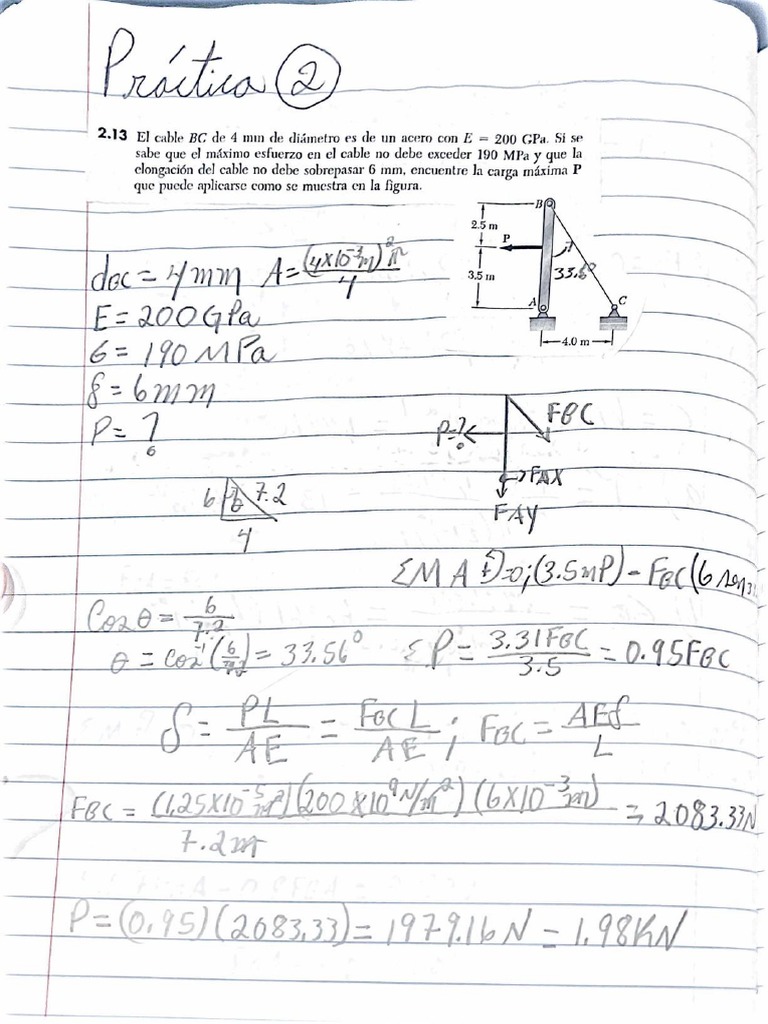 Práctica 2
2.13 El cable BC de 4 mm de diámetro es de un acero con E = 200 GPa. Si se
sabe que el máximo esfuerzo en el cable no debe exceder 190 MPa y que la
elongación del cable no debe sobrepasar 6 mm, encuentre la carga máxima P
que puede aplicarse como se muestra en la figura.
B
2.5 m
P
3.5 m
33.5°
A
C
4.0 m
dBC = 4mm A = (4x10⁻³m)²π / 4
E = 200GPa
6 = 190MPa
δ = 6mm
P = ?
P=?
FBC
FAX
FAY
6 7.2
4
ΣMA +)=0; (3.5mP) - FBC (6
Cosθ = 6/7.2
θ = cos⁻¹(6/7.2) = 33.56° ΣP = 3.31FBC / 3.5 = 0.95FBC
δ = PL/AE = FBC L/AE; FBC = AEδ/L
FBC = (1.25x10⁻⁵m²)(200x10⁹N/m²)(6x10⁻³m) / 7.2m = 2083.33N
P = (0.95)(2083.33) = 1979.16N = 1.98KN